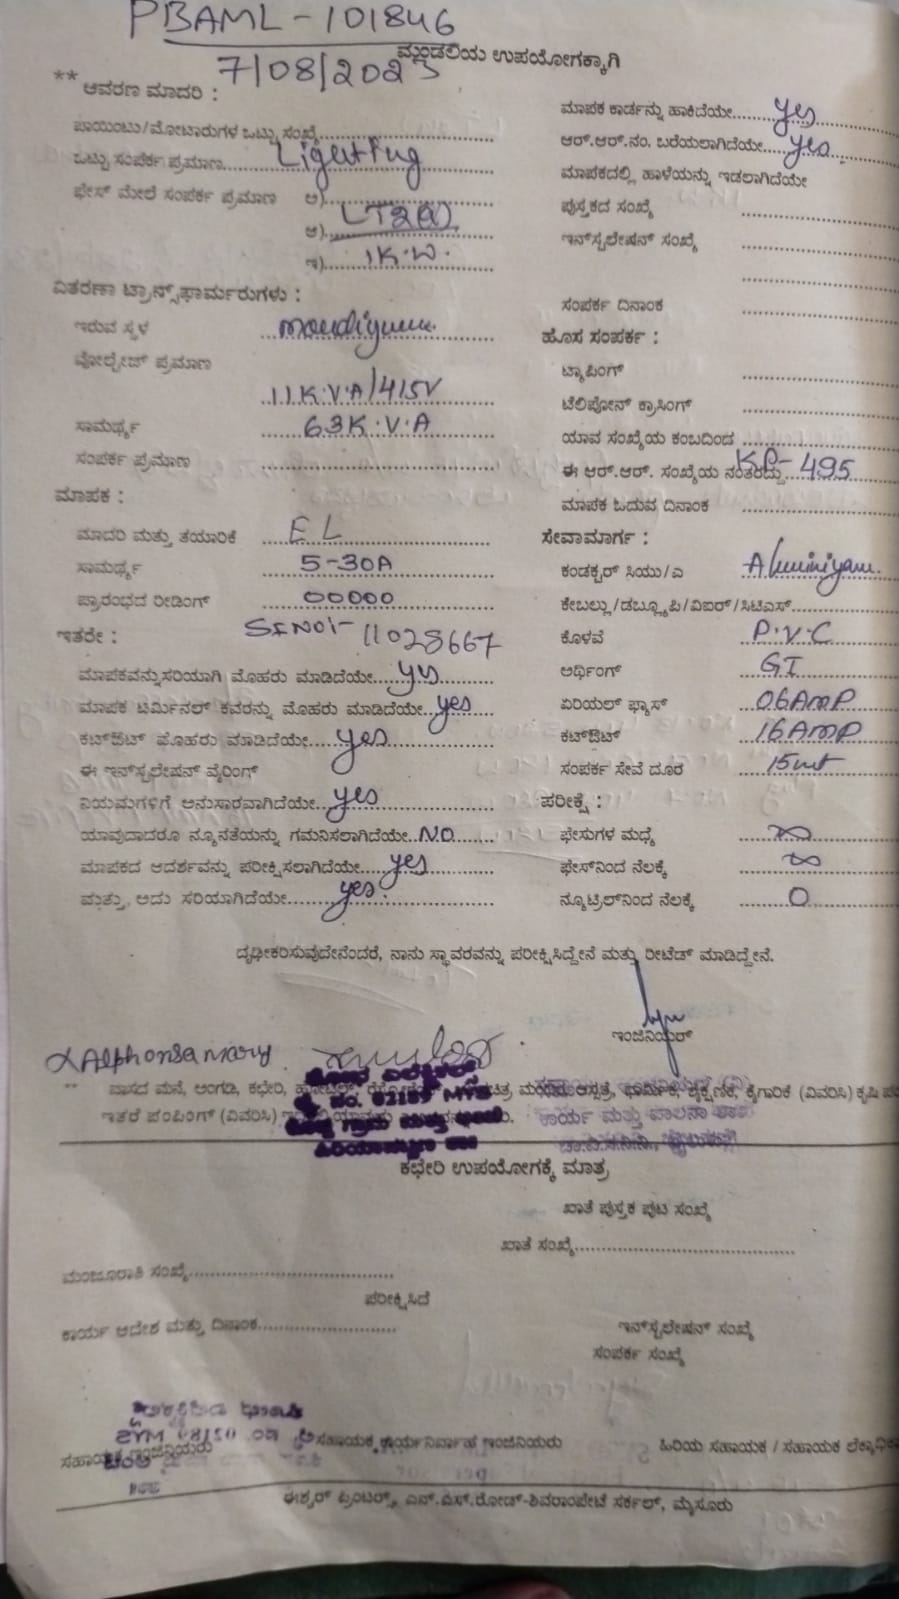 PBAML-101846
7/08/2023
ಮಂಡಲಿಯ ಉಪಯೋಗಕ್ಕಾಗಿ
** ಆವರಣ ಮಾದರಿ :
ಪಾಯಿಂಟು/ಮೋಟಾರುಗಳ ಒಟ್ಟು ಸಂಖ್ಯೆ
ಒಟ್ಟು ಸಂಪರ್ಕ ಪ್ರಮಾಣ Lighting
ಫೇಸ್ ಮೇಲೆ ಸಂಪರ್ಕ ಪ್ರಮಾಣ ಅ)
ಆ) LT2(a)
ಇ) 1K.W.
ವಿತರಣಾ ಟ್ರಾನ್ಸ್‌ಫಾರ್ಮರುಗಳು :
ಇರುವ ಸ್ಥಳ
ವೋಲ್ಟೇಜ್ ಪ್ರಮಾಣ
11K.V.A/415V
ಸಾಮರ್ಥ್ಯ 63K.V.A
ಸಂಪರ್ಕ ಪ್ರಮಾಣ
ಮಾಪಕ :
ಮಾದರಿ ಮತ್ತು ತಯಾರಿಕೆ EL
ಸಾಮರ್ಥ್ಯ 5-30A
ಪ್ರಾರಂಭದ ರೀಡಿಂಗ್ 00000
ಇತರೇ : 11028667
ಮಾಪಕವನ್ನು ಸರಿಯಾಗಿ ಮೊಹರು ಮಾಡಿದೆಯೇ yes
ಮಾಪಕ ಟರ್ಮಿನಲ್ ಕವರನ್ನು ಮೊಹರು ಮಾಡಿದೆಯೇ yes
ಕಟ್‌ಔಟ್ ಮೊಹರು ಮಾಡಿದೆಯೇ yes
ಈ ಇನ್‌ಸ್ಟಲೇಷನ್ ವೈರಿಂಗ್
ನಿಯಮಗಳಿಗೆ ಅನುಸಾರವಾಗಿದೆಯೇ yes
ಯಾವುದಾದರೂ ನ್ಯೂನತೆಯನ್ನು ಗಮನಿಸಲಾಗಿದೆಯೇ NO
ಮಾಪಕದ ಆದರ್ಶವನ್ನು ಪರೀಕ್ಷಿಸಲಾಗಿದೆಯೇ yes
ಮತ್ತು ಅದು ಸರಿಯಾಗಿದೆಯೇ yes
ಮಾಪಕ ಕಾರ್ಡನ್ನು ಹಾಕಿದೆಯೇ yes
ಆರ್.ಆರ್.ನಂ. ಬರೆಯಲಾಗಿದೆಯೇ yes.
ಮಾಪಕದಲ್ಲಿ ಹಾಳೆಯನ್ನು ಇಡಲಾಗಿದೆಯೇ
ಪುಸ್ತಕದ ಸಂಖ್ಯೆ
ಇನ್‌ಸ್ಟಲೇಷನ್ ಸಂಖ್ಯೆ
ಸಂಪರ್ಕ ದಿನಾಂಕ
ಹೊಸ ಸಂಪರ್ಕ :
ಟ್ಯಾಪಿಂಗ್
ಟೆಲಿಫೋನ್ ಕ್ರಾಸಿಂಗ್
ಯಾವ ಸಂಖ್ಯೆಯ ಕಂಬದಿಂದ
ಈ ಆರ್.ಆರ್. ಸಂಖ್ಯೆಯ ನಂತರದ್ದು KP-495
ಮಾಪಕ ಓದುವ ದಿನಾಂಕ
ಸೇವಾಮಾರ್ಗ :
ಕಂಡಕ್ಟರ್ ಸಿಯು/ಎ Aluminiyam
ಕೇಬಲ್ಲು/ಡಬ್ಲ್ಯೂಪಿ/ವಿಐರ್/ಸಿಟಿಎಸ್
ಕೊಳವೆ P.V.C
ಅರ್ಥಿಂಗ್ GI
ಏರಿಯಲ್ ಫ್ಯೂಸ್ 06AMP
ಕಟ್‌ಔಟ್ 16AMP
ಸಂಪರ್ಕ ಸೇವೆ ದೂರ 15mt
ಪರೀಕ್ಷೆ :
ಫೇಸುಗಳ ಮಧ್ಯೆ ∞
ಫೇಸ್‌ನಿಂದ ನೆಲಕ್ಕೆ ∞
ನ್ಯೂಟ್ರಲ್‌ನಿಂದ ನೆಲಕ್ಕೆ 0
ದೃಢೀಕರಿಸುವುದೇನೆಂದರೆ, ನಾನು ಸ್ಥಾವರವನ್ನು ಪರೀಕ್ಷಿಸಿದ್ದೇನೆ ಮತ್ತು ರೀಟೆಡ್ ಮಾಡಿದ್ದೇನೆ.
ಇಂಜಿನಿಯರ್
Alphonsa mary
** ವಾಸದ ಮನೆ, ಅಂಗಡಿ, ಕಛೇರಿ, ಮಂದಿರ ಆಸ್ಪತ್ರೆ, ಧಾರ್ಮಿಕ, ಶೈಕ್ಷಣಿಕ, ಕೈಗಾರಿಕೆ (ವಿವರಿಸಿ) ಕೃಷಿ
ಇತರೆ ಪಂಪಿಂಗ್ (ವಿವರಿಸಿ)
ಕಾರ್ಯ ಮತ್ತು ಪಾಲನಾ
ಕಛೇರಿ ಉಪಯೋಗಕ್ಕೆ ಮಾತ್ರ
ಖಾತೆ ಪುಸ್ತಕ ಪುಟ ಸಂಖ್ಯೆ
ಖಾತೆ ಸಂಖ್ಯೆ
ಮಂಜೂರಾತಿ ಸಂಖ್ಯೆ
ಪರೀಕ್ಷಿಸಿದೆ
ಕಾರ್ಯ ಆದೇಶ ಮತ್ತು ದಿನಾಂಕ
ಇನ್‌ಸ್ಟಲೇಷನ್ ಸಂಖ್ಯೆ
ಸಂಪರ್ಕ ಸಂಖ್ಯೆ
ಸಹಾಯಕ ಇಂಜಿನಿಯರು
ಸಹಾಯಕ ಕಾರ್ಯನಿರ್ವಾಹ ಇಂಜಿನಿಯರು
ಹಿರಿಯ ಸಹಾಯಕ / ಸಹಾಯಕ
ಈಶ್ವರ್ ಪ್ರಿಂಟರ್ಸ್, ಎನ್.ಎಸ್.ರೋಡ್-ಶಿವರಾಂಪೇಟೆ ಸರ್ಕಲ್, ಮೈಸೂರು